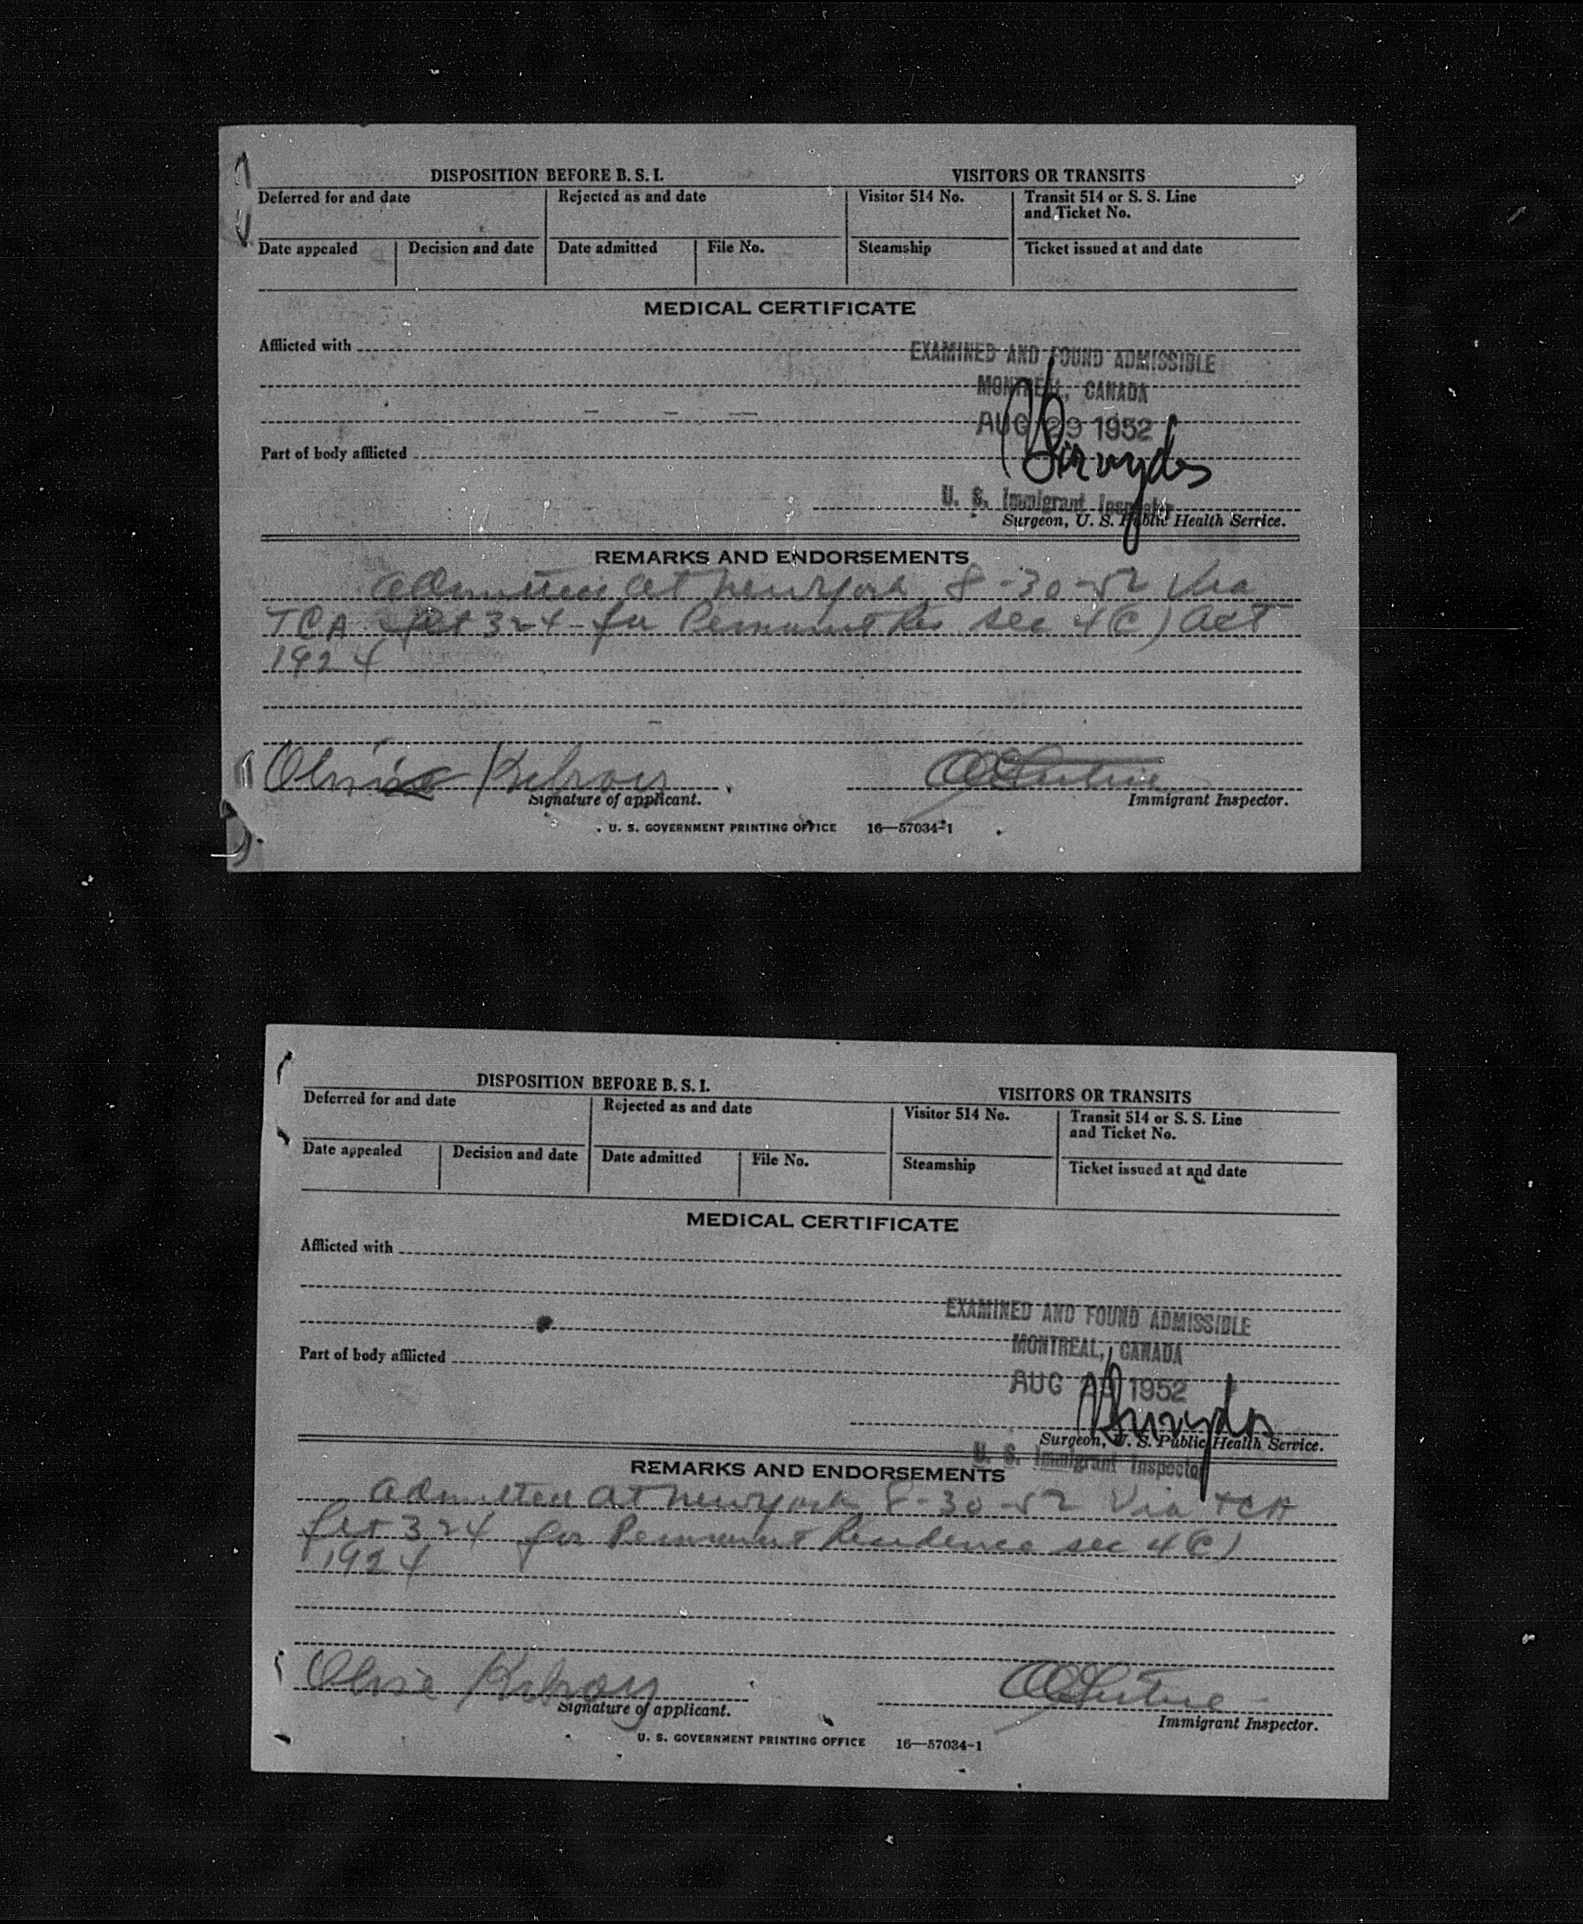 DISPOSITION BEFORE B. S. I.
VISITORS OR TRANSITS
Deferred for and date
Rejected as and date
Visitor 514 No.
Transit 514 or S. S. Line
and Ticket No.
Date appealed
Decision and date
Date admitted
File No.
Steamship
Ticket issued at and date
MEDICAL CERTIFICATE
Afflicted with
EXAMINED AND FOUND ADMISSIBLE
MONTREAL, CANADA
AUG 29 1952
Part of body afflicted
U. S. Immigrant Inspector
Surgeon, U. S. Public Health Service.
REMARKS AND ENDORSEMENTS
admitted at New York 8-30-52 Via
TCA 324 for Permanent Res sec 4(C) Act
1924
Signature of applicant.
Immigrant Inspector.
U. S. GOVERNMENT PRINTING OFFICE 16—57034-1
DISPOSITION BEFORE B. S. I.
VISITORS OR TRANSITS
Deferred for and date
Rejected as and date
Visitor 514 No.
Transit 514 or S. S. Line
and Ticket No.
Date appealed
Decision and date
Date admitted
File No.
Steamship
Ticket issued at and date
MEDICAL CERTIFICATE
Afflicted with
EXAMINED AND FOUND ADMISSIBLE
MONTREAL, CANADA
Part of body afflicted
AUG 29 1952
Surgeon, U. S. Public Health Service.
U. S. Immigrant Inspector
REMARKS AND ENDORSEMENTS
admitted at New York 8-30-52 Via TCA
324 for Permanent Residence sec 4(C)
1924
Signature of applicant.
Immigrant Inspector.
U. S. GOVERNMENT PRINTING OFFICE 16—57034-1